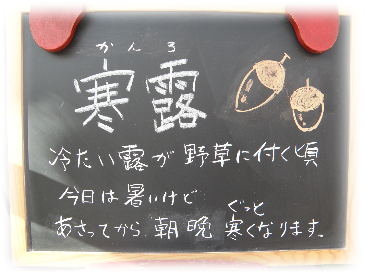 かんろ
寒露
冷たい露が野草に付く頃
今日は暑いけど
あさってから朝晩ぐっと寒くなります。